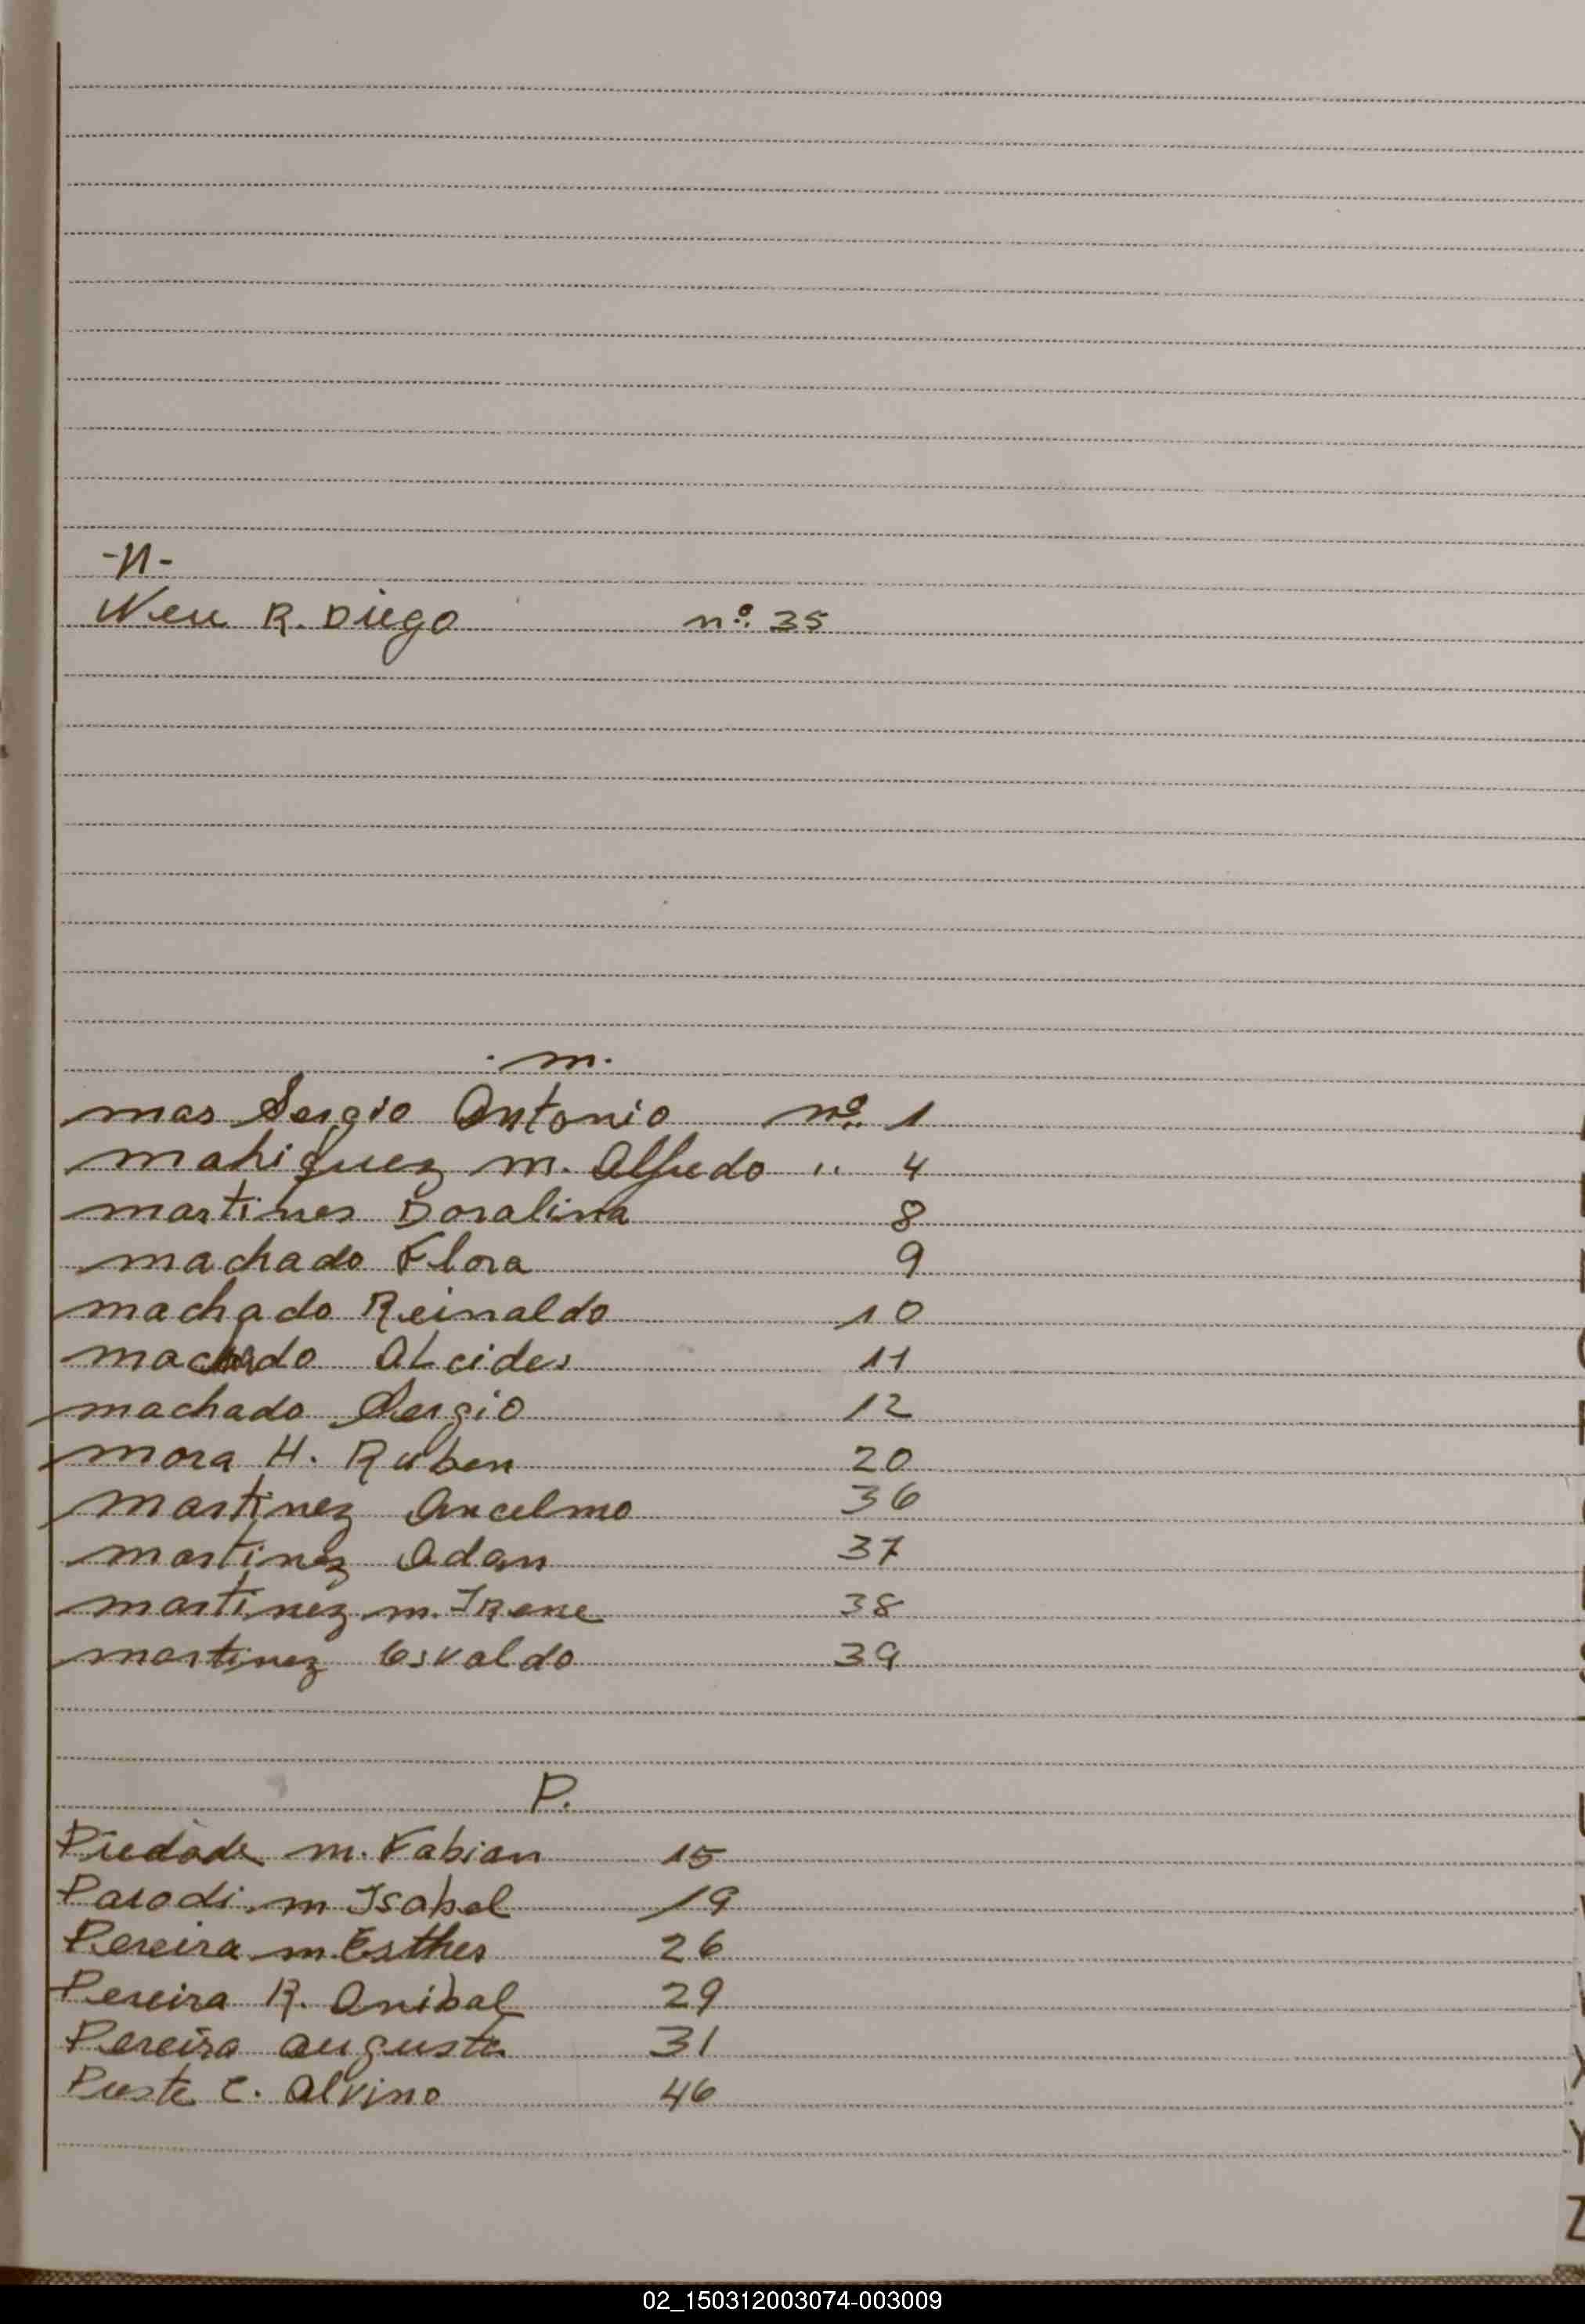 -N-
Neu R. Diego nº. 35
. m.
mas Sergio Antonio nº. 1
mahiquez m. Alfredo " 4
martines Doralina 8
machado Flora 9
machado Reinaldo 10
machado Alcides 11
machado Sergio 12
mora H. Ruben 20
martinez Ancelmo 36
martinez Adan 37
martinez m. Irene 38
martinez Osvaldo 39
P.
Piedade m. Fabian 15
Parodi m Isabel 19
Pereira m. Esther 26
Pereira R. Anibal 29
Pereira Augusta 31
C. Alvino 46
Y
Z
02_150312003074-003009